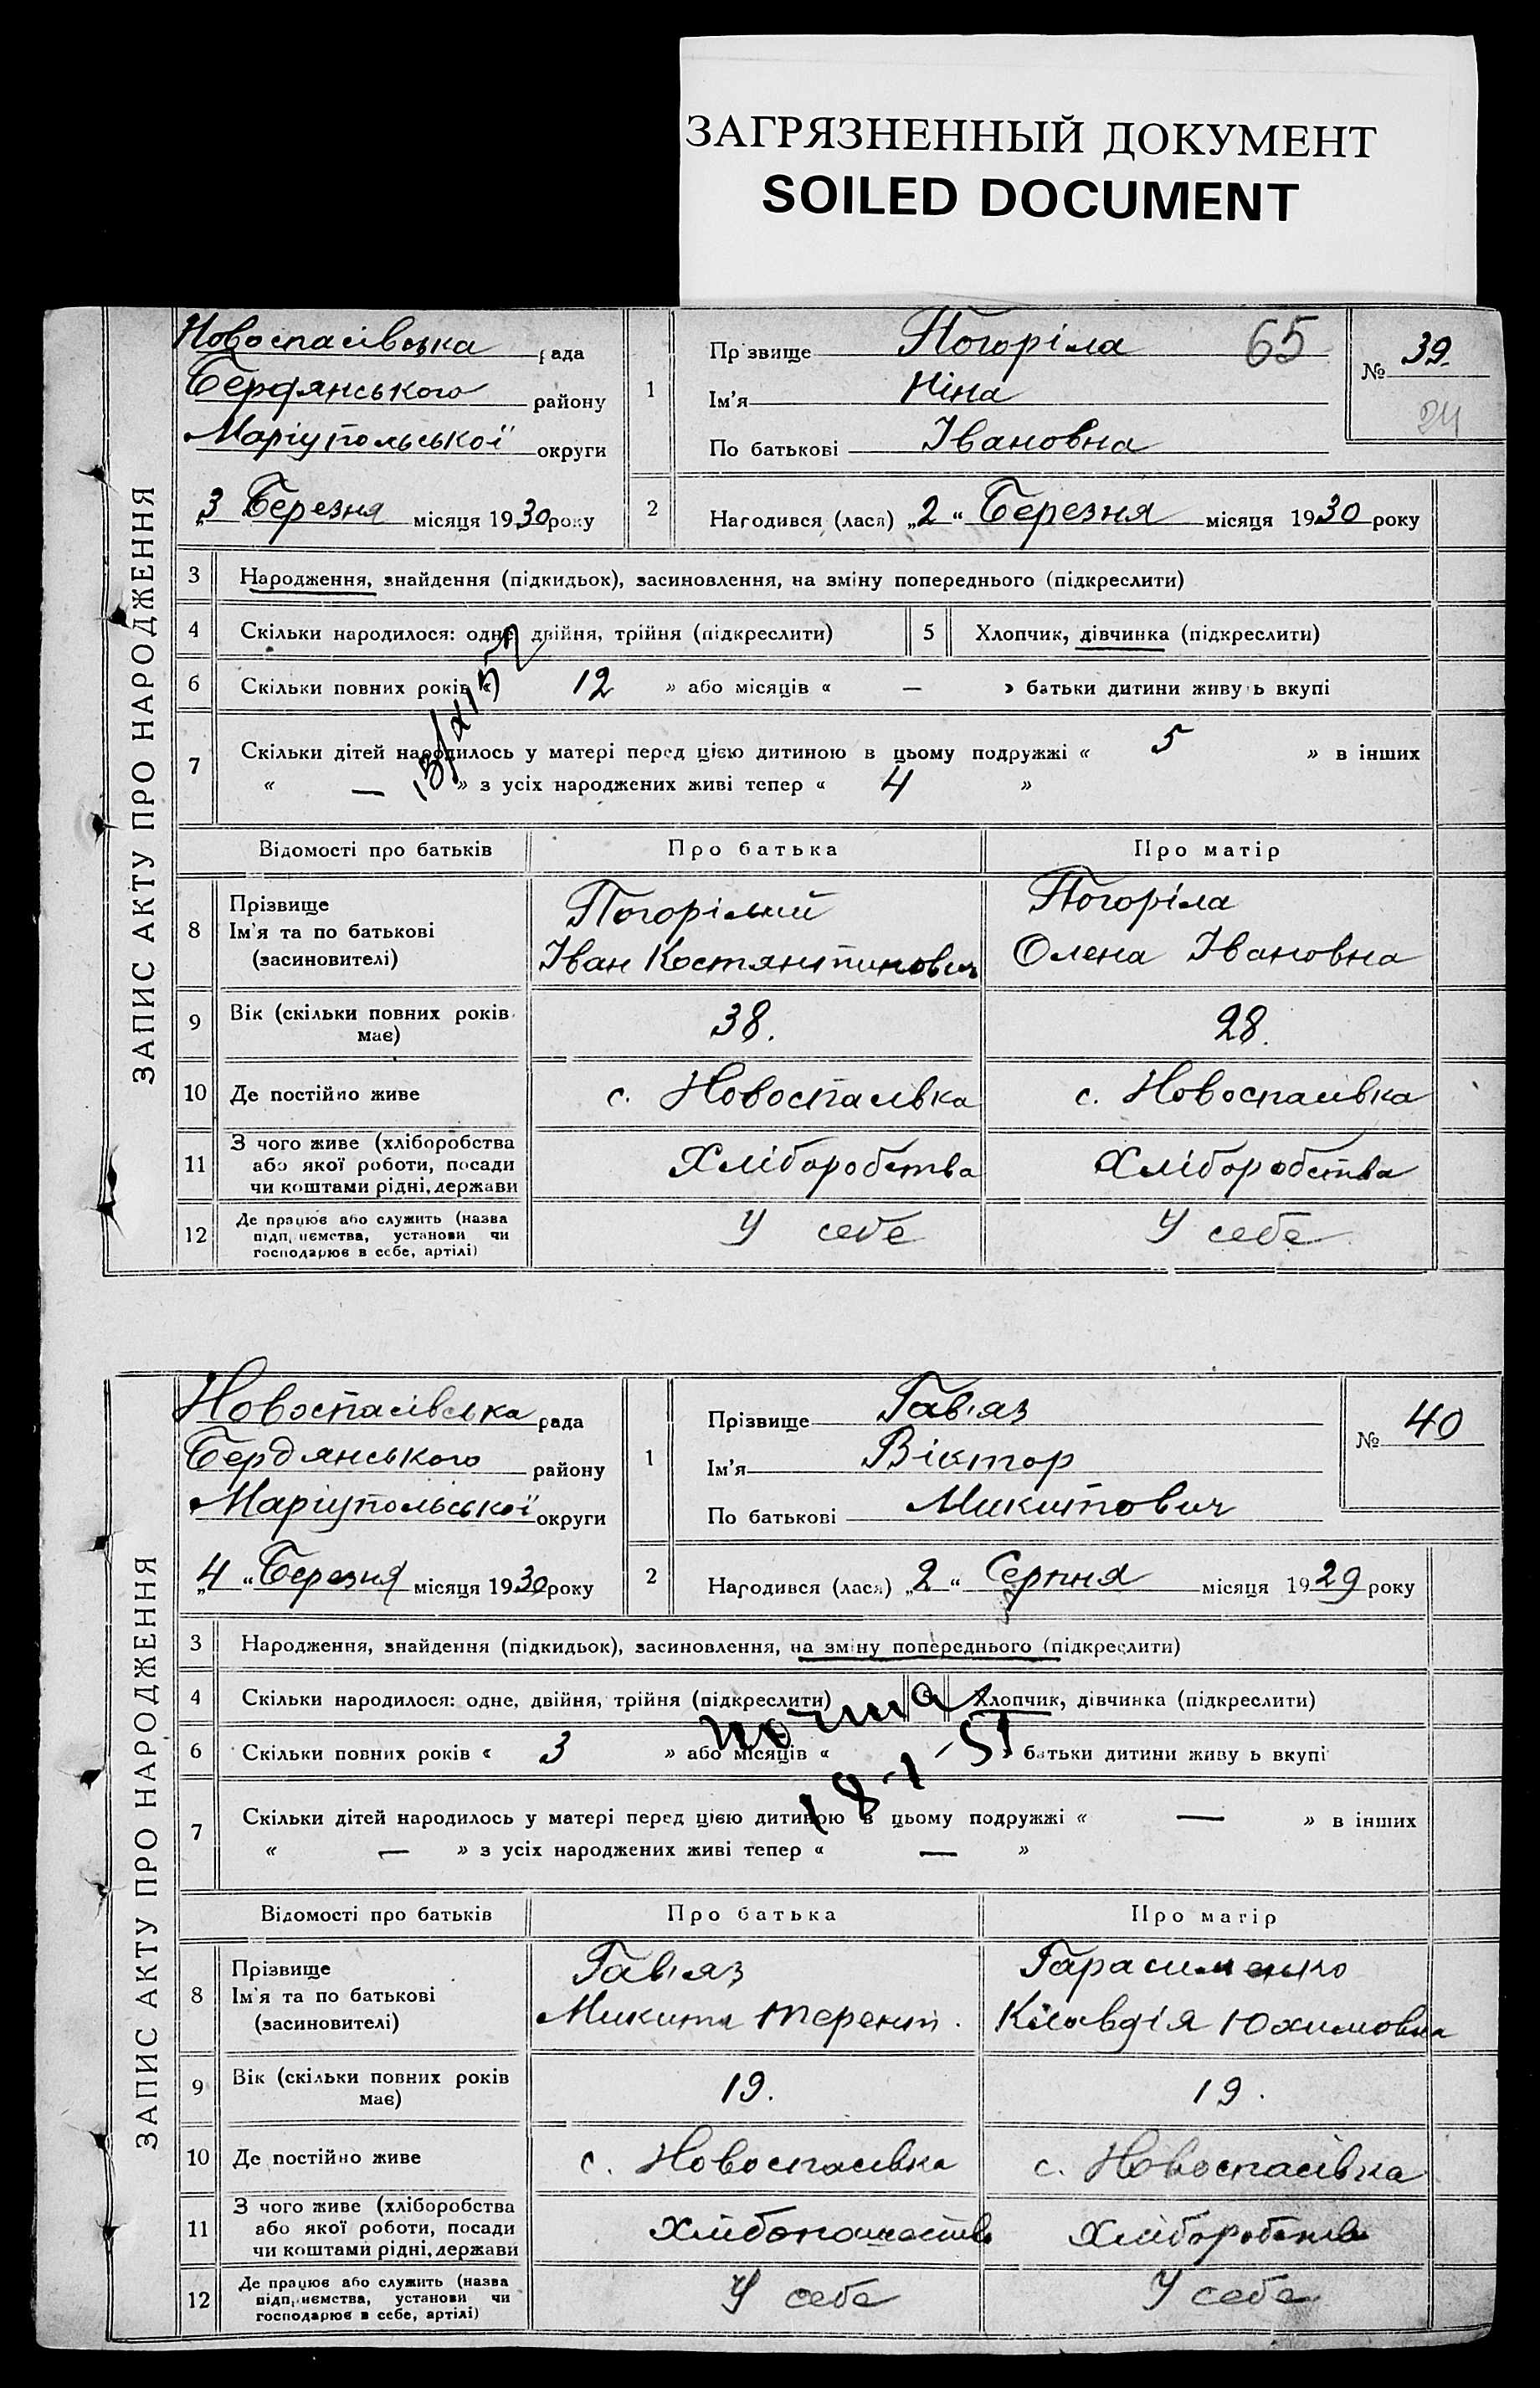 ЗАГРЯЗНЕННЫЙ ДОКУМЕНТ
SOILED DOCUMENT
ЗАПИС АКТУ ПРО НАРОДЖЕННЯ
Новоспасівська рада
Бердянського району
Маріупольської округи
„3 Березня місяця 1930 року
1
Прізвище Погоріла 65
Ім'я Ніна
По батькові Івановна
№ 39.
24
2 Народився (лася) „2“ Березня місяця 1930 року
3 Народження, знайдення (підкидьок), засиновлення, на зміну попереднього (підкреслити)
4 Скільки народилося: одне, двійня, трійня (підкреслити) 5 Хлопчик, дівчинка (підкреслити)
6 Скільки повних років « 12 » або місяців « — » батьки дитини живуть вкупі
7 Скільки дітей народилось у матері перед цією дитиною в цьому подружжі « 5 » в інших
« — » з усіх народжених живі тепер « 4 »
Відомості про батьків Про батька Про матір
8 Прізвище Погорілий Погоріла
Ім'я та по батькові Іван Костянтинович Олена Івановна
(засиновителі)
9 Вік (скільки повних років має) 38. 28.
10 Де постійно живе с. Новоспасівка с. Новоспасівка
11 З чого живе (хліборобства
або якої роботи, посади Хліборобства Хліборобства
чи коштами рідні, держави
12 Де працює або служить (назва
підприємства, установи чи У себе У себе
господарює в себе, артілі)
ЗАПИС АКТУ ПРО НАРОДЖЕННЯ
Новоспасівська рада
Бердянського району
Маріупольської округи
„4“ Березня місяця 1930 року
1
Прізвище Гав'яз
Ім'я Віктор
По батькові Микитович
№ 40
2 Народився (лася) „2“ Серпня місяця 1929 року
3 Народження, знайдення (підкидьок), засиновлення, на зміну попереднього (підкреслити)
4 Скільки народилося: одне, двійня, трійня (підкреслити) 5 Хлопчик, дівчинка (підкреслити)
6 Скільки повних років « 3 » або місяців « » батьки дитини живуть вкупі
18-1-51
7 Скільки дітей народилось у матері перед цією дитиною в цьому подружжі « — » в інших
« — » з усіх народжених живі тепер « — »
Відомості про батьків Про батька Про матір
8 Прізвище Гав'яз Гарасименко
Ім'я та по батькові Микита Терент. Клавдія Юхимовна
(засиновителі)
9 Вік (скільки повних років має) 19. 19.
10 Де постійно живе с. Новоспасівка с. Новоспасівка
11 З чого живе (хліборобства
або якої роботи, посади Хліборобства
чи коштами рідні, держави
12 Де працює або служить (назва
підприємства, установи чи У себе У себе
господарює в себе, артілі)